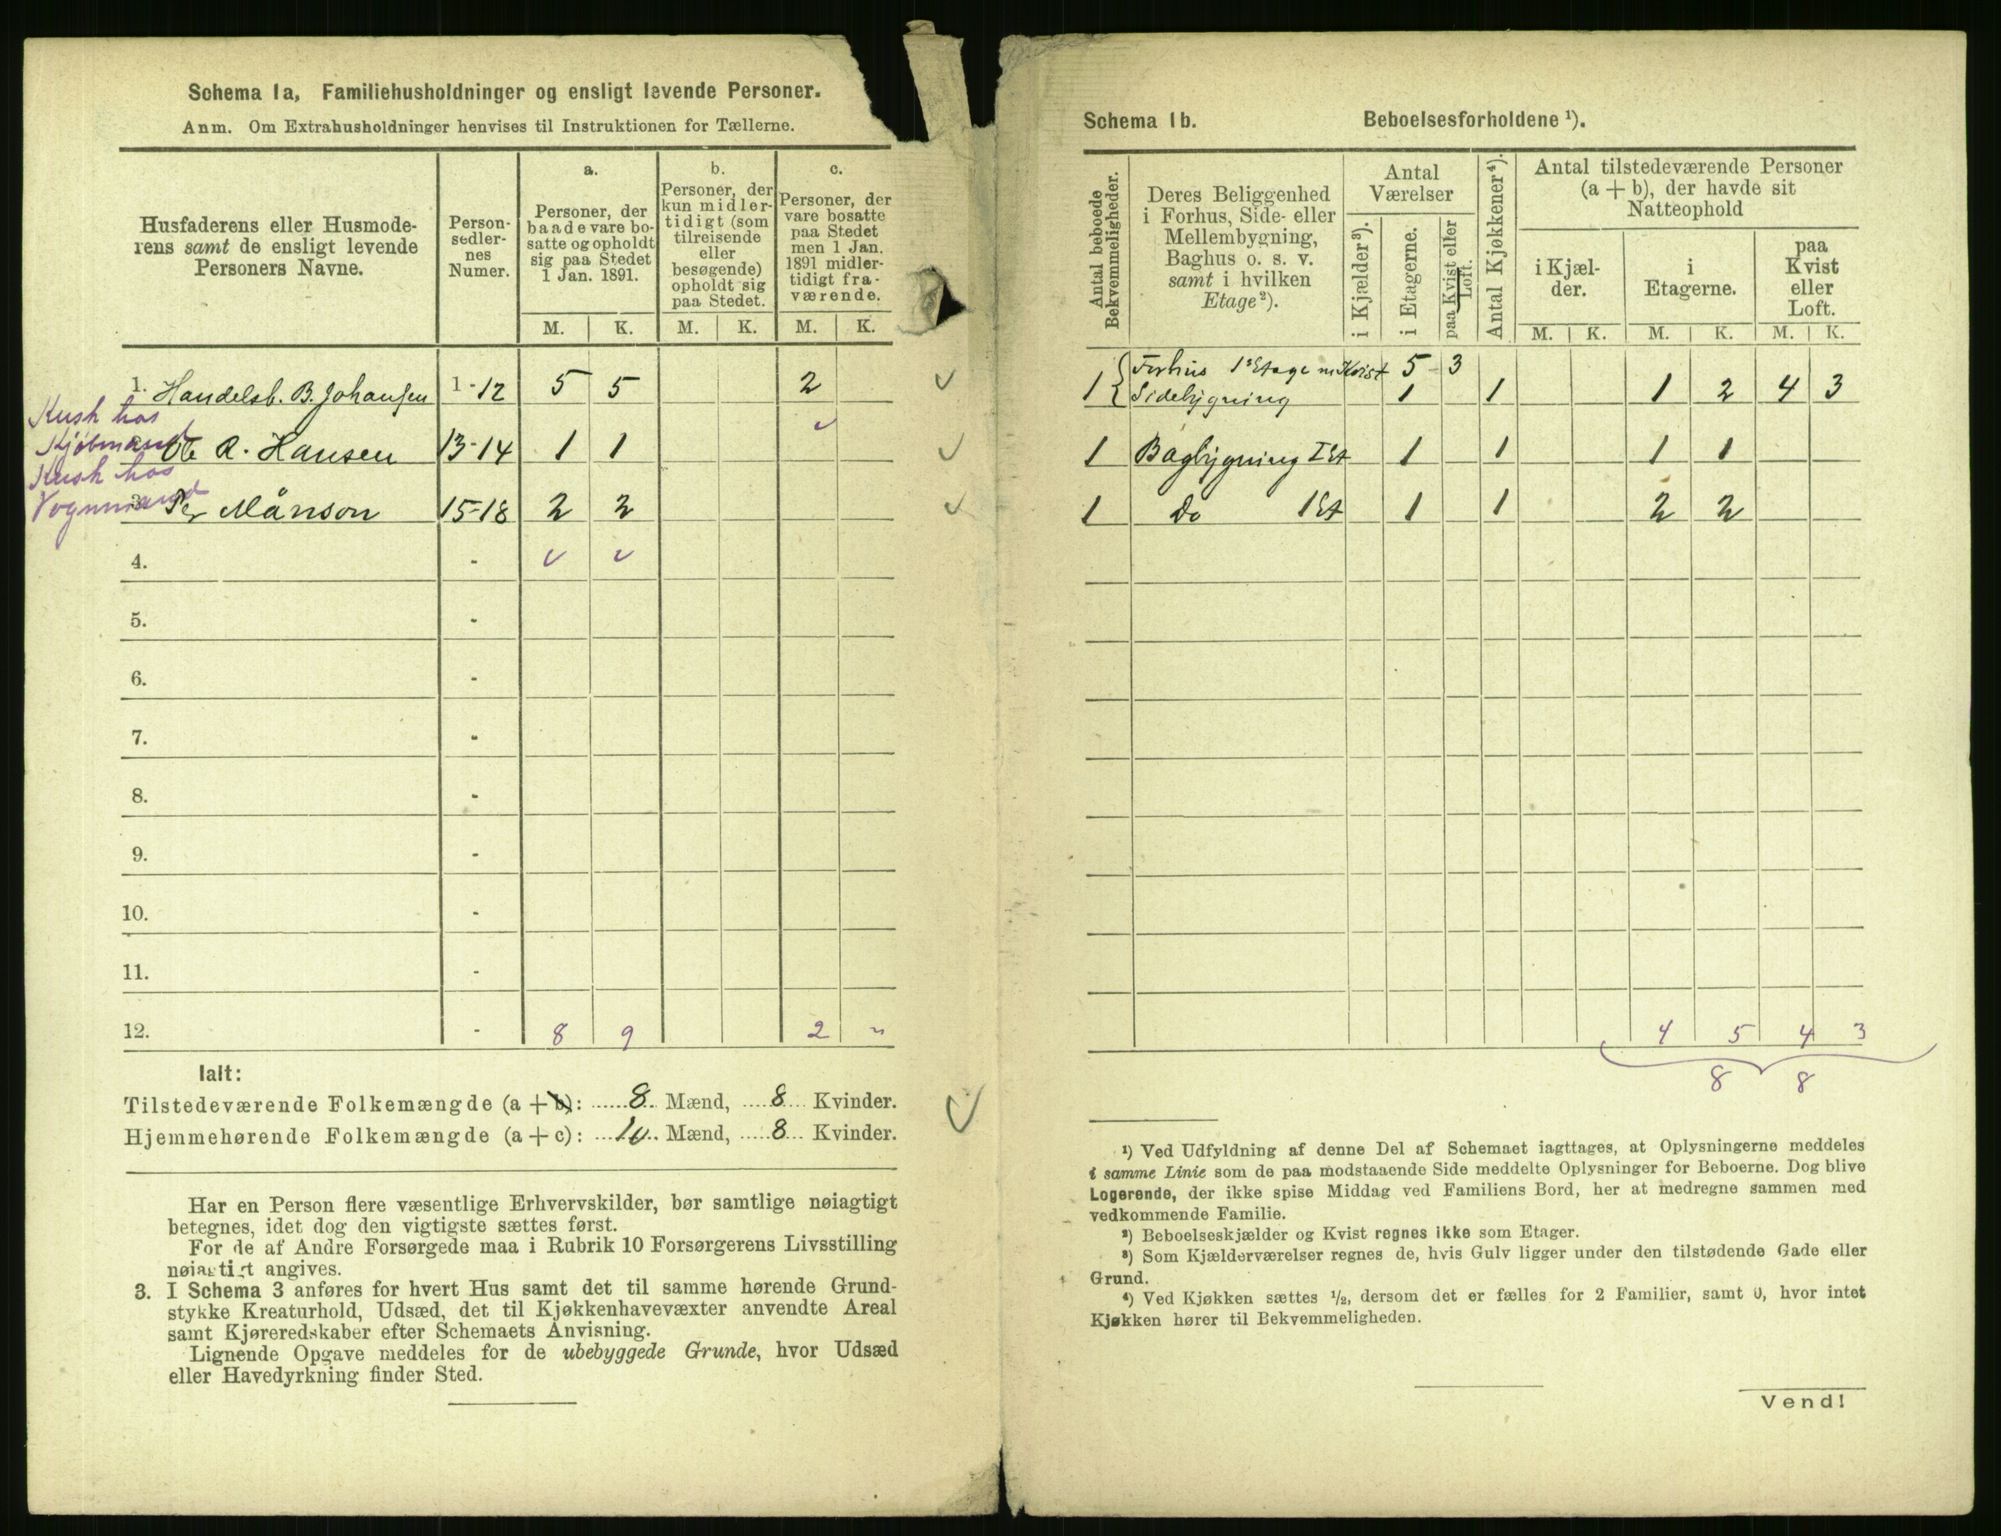 Schema 1a, Familiehusholdninger og ensligt levende Personer.
Anm. Om Extrahusholdninger henvises til Instruktionen for Tællerne.
Husfaderens eller Husmoderens samt de ensligt levende Personers Navne.
Personsedlernes Numer.
a.
Personer, der baade vare bosatte og opholdt sig paa Stedet 1 Jan. 1891.
b.
Personer, der kun midlertidigt (som tilreisende eller besøgende) opholdt sig paa Stedet.
c.
Personer, der vare bosatte paa Stedet men 1 Jan. 1891 midlertidigt fraværende.
M. K. M. K. M. K.
1. Handelsb. B. Johansen 1-12 5 5 2
Kush hos
Kjøbmand
Ole R. Hansen 13-14 1 1
Kush hos
Vognmand
3. Per Månson 15-18 2 2
4. -
5. -
6. -
7. -
8. -
9. -
10. -
11. -
12. - 8 9 2 "
Ialt:
Tilstedeværende Folkemængde (a + b): 8 Mænd, 8 Kvinder.
Hjemmehørende Folkemængde (a + c): 10 Mænd, 8 Kvinder.
Har en Person flere væsentlige Erhvervskilder, bør samtlige nøiagtigt
betegnes, idet dog den vigtigste sættes først.
For de af Andre Forsørgede maa i Rubrik 10 Forsørgerens Livsstilling
nøiagtigt angives.
3. I Schema 3 anføres for hvert Hus samt det til samme hørende Grund-
stykke Kreaturhold, Udsæd, det til Kjøkkenhavevæxter anvendte Areal
samt Kjøreredskaber efter Schemaets Anvisning.
Lignende Opgave meddeles for de ubebyggede Grunde, hvor Udsæd
eller Havedyrkning finder Sted.
Schema 1b. Beboelsesforholdene ¹).
Antal beboede Bekvemmeligheder.
Deres Beliggenhed i Forhus, Side- eller Mellembygning, Baghus o. s. v. samt i hvilken Etage²).
Antal Værelser
i Kjælder³).
i Etagerne.
paa Kvist eller Loft.
Antal Kjøkkener⁴).
Antal tilstedeværende Personer (a + b), der havde sit Natteophold
i Kjælder.
i Etagerne.
paa Kvist eller Loft.
M. K. M. K. M. K.
Forhus 1ste Etage m Kvist 5 3
1 Sidebygning 1 1 1 2 4 3
1 Bagbygning 1 Et 1 1 1 1
1 Do 1 Et 1 1 2 2
4 5 4 3
8 8
¹) Ved Udfyldning af denne Del af Schemaet iagttages, at Oplysningerne meddeles
i samme Linie som de paa modstaaende Side meddelte Oplysninger for Beboerne. Dog blive
Logerende, der ikke spise Middag ved Familiens Bord, her at medregne sammen med
vedkommende Familie.
²) Beboelseskjælder og Kvist regnes ikke som Etager.
³) Som Kjælderværelser regnes de, hvis Gulv ligger under den tilstødende Gade eller
Grund.
⁴) Ved Kjøkken sættes ½, dersom det er fælles for 2 Familier, samt 0, hvor intet
Kjøkken hører til Bekvemmeligheden.
Vend!